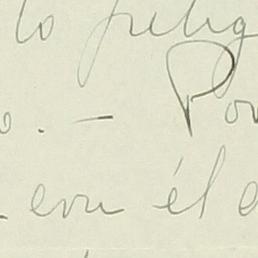 lo pelig
o. — Por
con él e